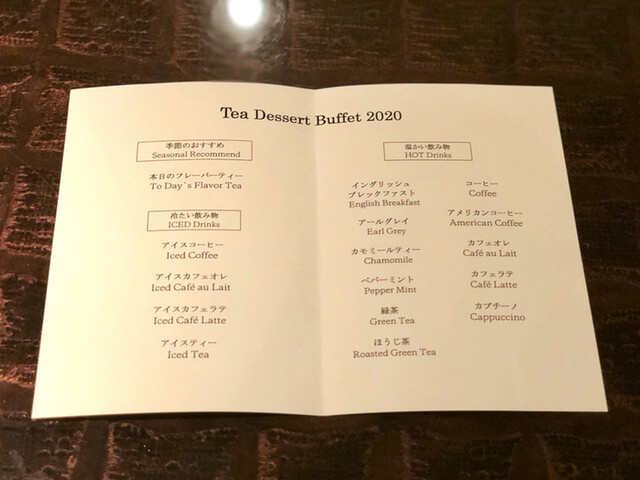 Tea Dessert Buffet 2020
季節のおすすめ
Seasonal Recommend
本日のフレーバーティー
To Day's Flavor Tea
冷たい飲み物
ICED Drinks
アイスコーヒー
Iced Coffee
アイスカフェオレ
Iced Café au Lait
アイスカフェラテ
Iced Café Latte
アイスティー
Iced Tea
温かい飲み物
HOT Drinks
イングリッシュ
ブレックファスト
English Breakfast
アールグレイ
Earl Grey
カモミールティー
Chamomile
ペパーミント
Pepper Mint
緑茶
Green Tea
ほうじ茶
Roasted Green Tea
コーヒー
Coffee
アメリカンコーヒー
American Coffee
カフェオレ
Café au Lait
カフェラテ
Café Latte
カプチーノ
Cappuccino